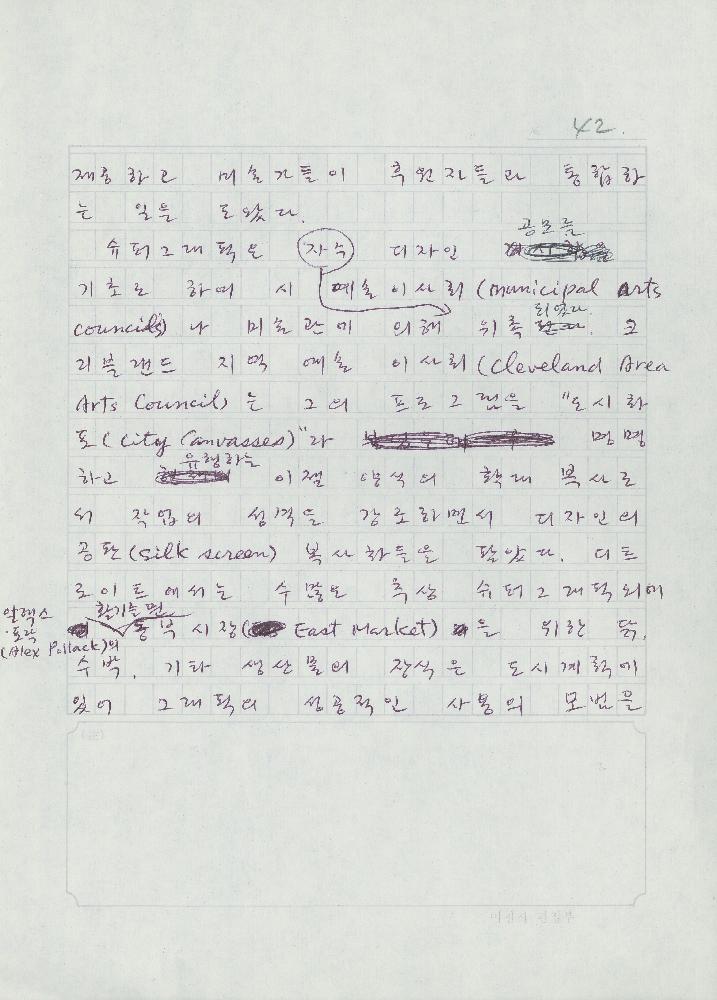 42.
제공하고 미술가들이 후원자들과 통합하
는 일을 도왔다.
공모를
슈퍼그래픽은 자주 디자인
기초로 하여 시 예술이사회 (municipal arts
되었다.
councils) 나 미술관에 의해 위촉 크
리블랜드 지역 예술 이사회 (Cleveland Area
Arts Council) 는 그의 프로그램을 "도시화
포 (City Canvasses)"라 명명
유행하는
하고 이젤 양식의 확대 복사로
서 작업의 성격을 강조하면서 디자인의
공판 (silk screen) 복사화들을 팔았다. 디트
로이트에서는 수많은 추상 슈퍼그래픽 외에
알렉스 활기를 띤
·포락 동부시장( East Market) 을 위한 닭,
(Alex Pollack)의
수박, 기타 생산물의 장식은 도시계획에
있어 그래픽의 성공적인 사용의 모범을
미진사 편집부